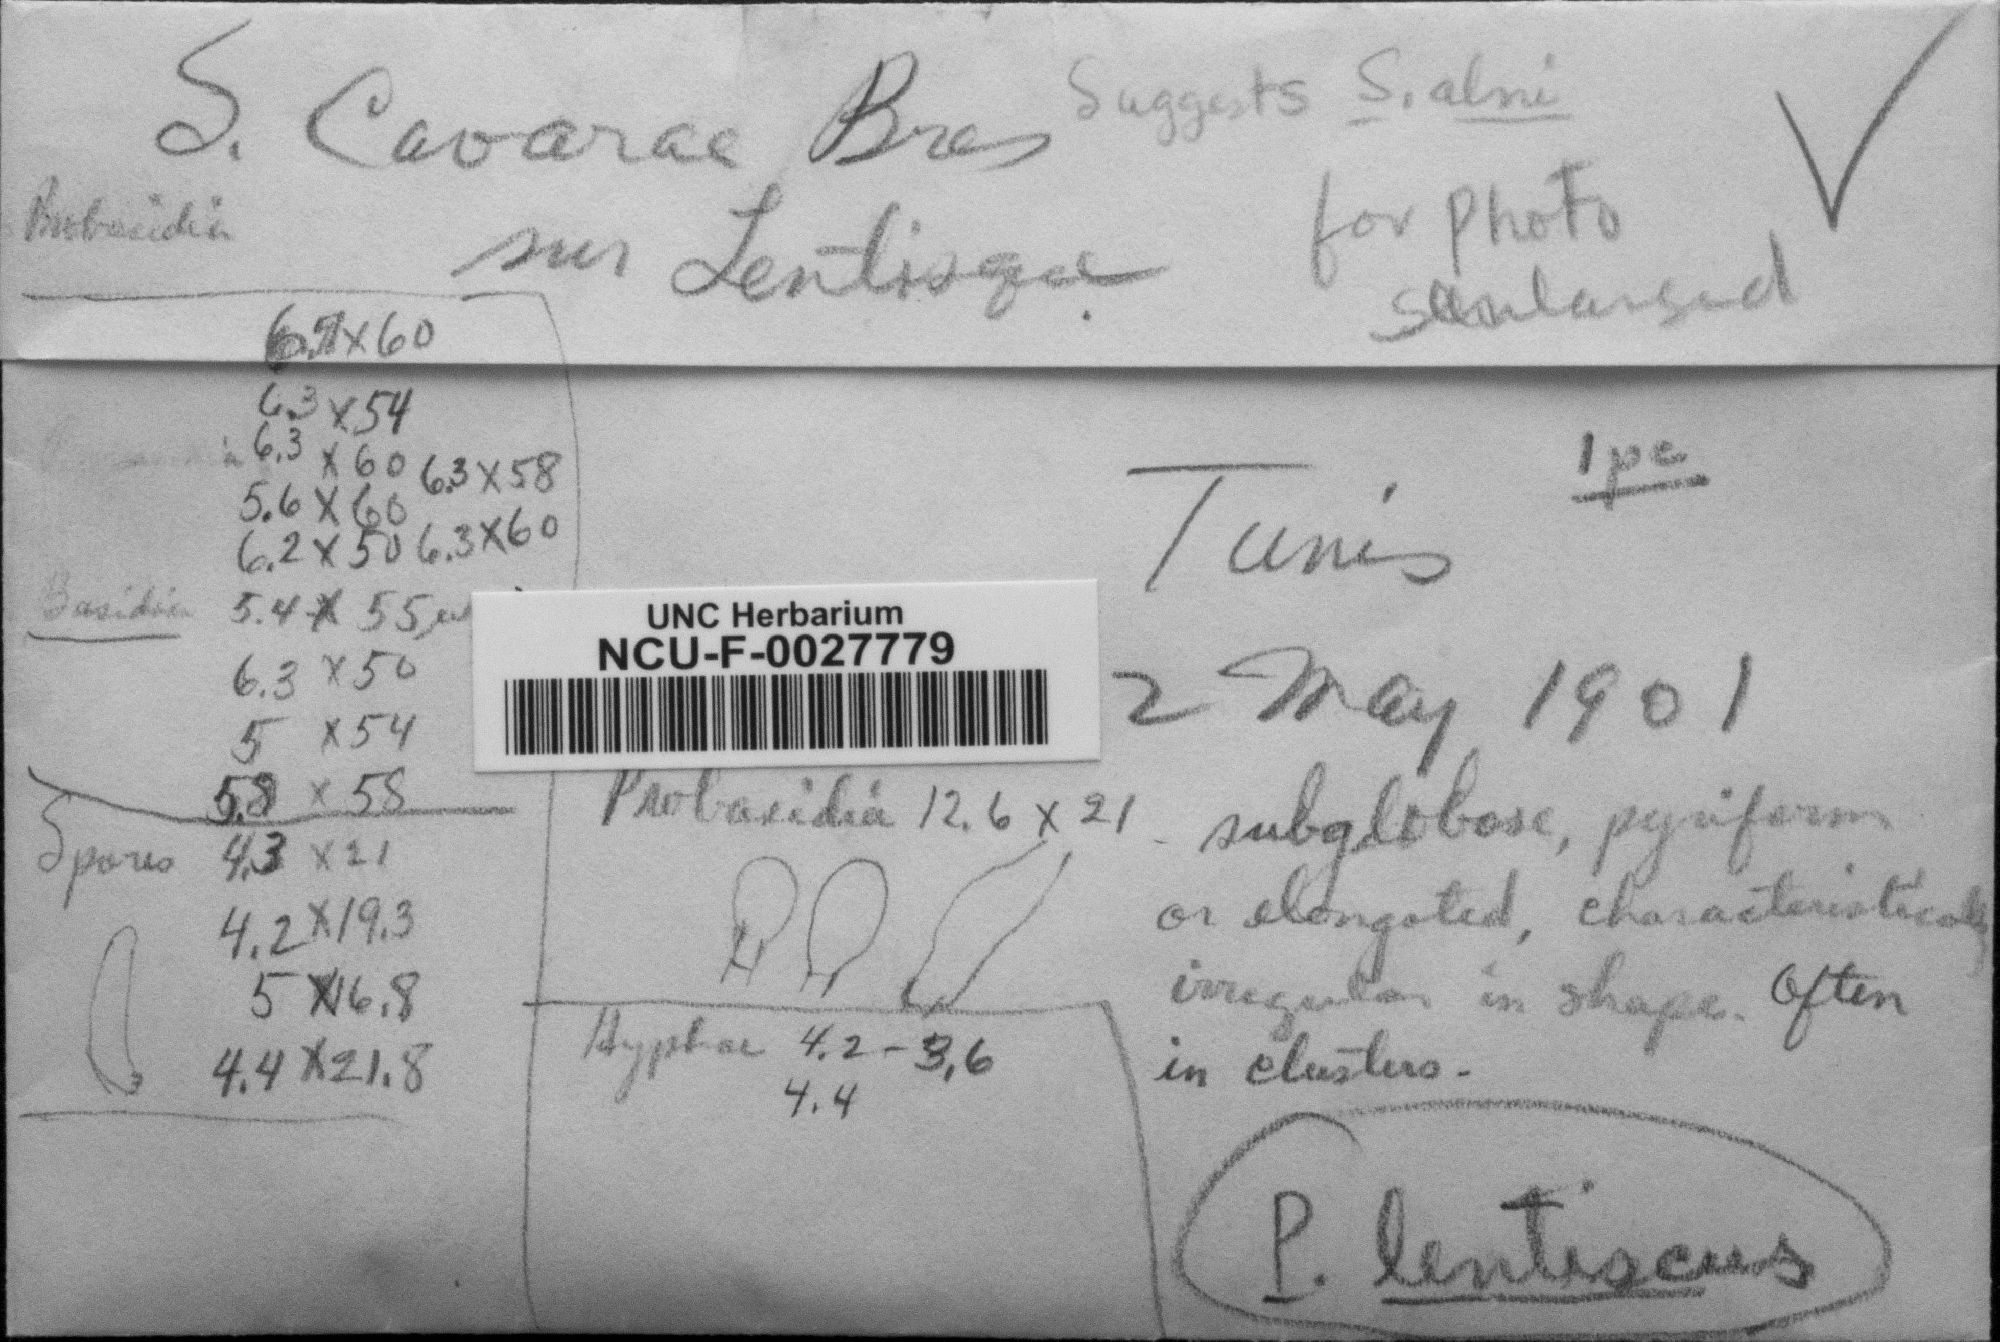 S. Cavarae Bres
Suggests S. alni
sur Lentisque.
for photo
enlarged
Probasidia
6.7 x 60
6.3 x 54
6.3 x 60 6.3 x 58
5.6 x 60
6.2 x 50 6.3 x 60
Basidia 5.4 x 55
6.3 x 50
5 x 54
5.8 x 58
Spores 4.3 x 21
4.2 x 19.3
5 x 16.8
4.4 x 21.8
1 pc
Tunis
UNC Herbarium
NCU-F-0027779
2 May 1901
Probasidia 12.6 x 21 - subglobose, pyriform
or elongated, characteristically
irregular in shape. Often
in clusters.
Hyphae 4.2 - 3,6
4.4
P. lentiscus